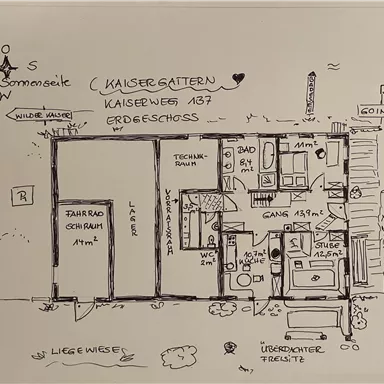 O
S
Sonnenseite
W
KAISERGATTERN
KAISERWEG 137
ERDGESCHOSS
WILDER KAISER
GOIN
TECHNIK-
RAUM
BAD
8,4
m²
11m²
VORRATSRAUM
3,5
GANG 13,9m²
LAGER
FAHRRAD
SCHIRAUM
14m²
P
WC
2m²
10,7m²
KÜCHE
STUBE
12,5m²
LIEGEWIESE
ÜBERDACHTER
FREISITZ